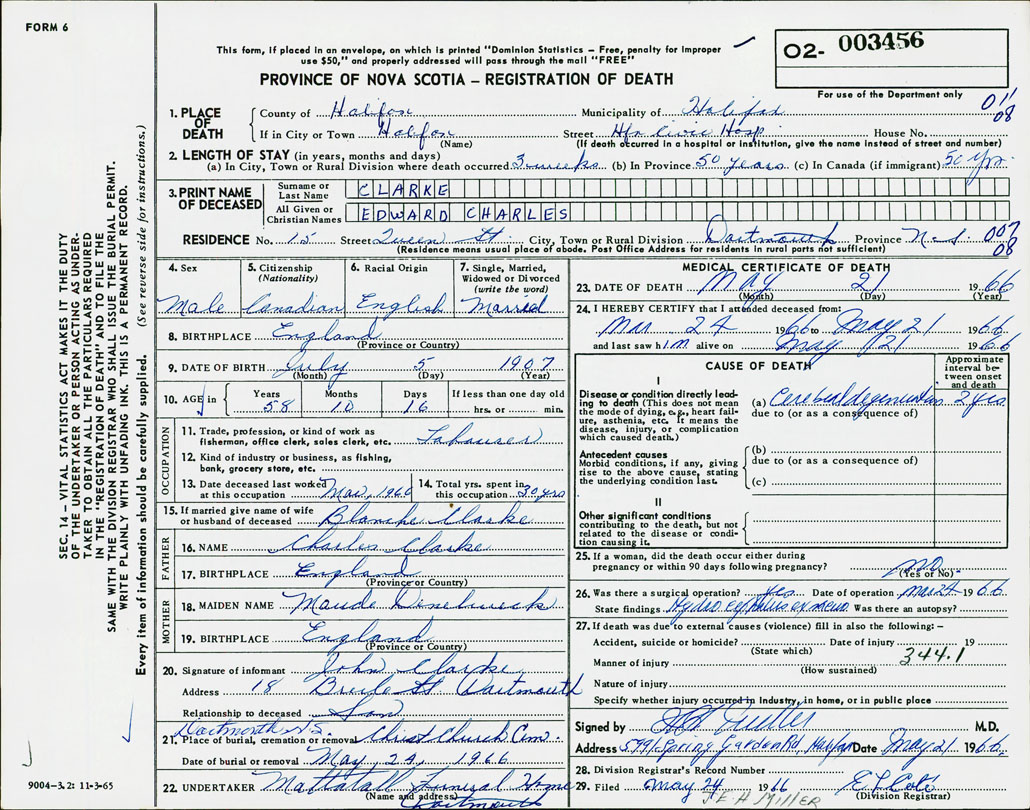 FORM 6
This form, if placed in an envelope, on which is printed "Dominion Statistics – Free, penalty for improper
use $50," and properly addressed will pass through the mail "FREE"
O2- 003456
PROVINCE OF NOVA SCOTIA – REGISTRATION OF DEATH
For use of the Department only
011
08
1. PLACE OF DEATH
County of Halifax Municipality of Halifax
If in City or Town Halifax Street Hfx Civic Hosp House No.
(Name) (If death occurred in a hospital or institution, give the name instead of street and number)
2. LENGTH OF STAY (in years, months and days)
(a) In City, Town or Rural Division where death occurred 3 weeks (b) In Province 50 years (c) In Canada (if immigrant) 50 Yr.
3. PRINT NAME OF DECEASED
Surname or Last Name CLARKE
All Given or Christian Names EDWARD CHARLES
RESIDENCE No. 15 Street Queen St. City, Town or Rural Division Dartmouth Province N.S. 007
08
(Residence means usual place of abode. Post Office Address for residents in rural parts not sufficient)
4. Sex 5. Citizenship (Nationality) 6. Racial Origin 7. Single, Married, Widowed or Divorced (write the word)
Male Canadian English Married
8. BIRTHPLACE England
(Province or Country)
9. DATE OF BIRTH July 5 1907
(Month) (Day) (Year)
10. AGE in Years Months Days If less than one day old
58 10 16 hrs. or min.
OCCUPATION
11. Trade, profession, or kind of work as
fisherman, office clerk, sales clerk, etc.
12. Kind of industry or business, as fishing,
bank, grocery store, etc.
13. Date deceased last worked at this occupation Mar, 1966
14. Total yrs. spent in this occupation 30 yrs
15. If married give name of wife
or husband of deceased Blanche Clarke
FATHER
16. NAME Charles Clarke
17. BIRTHPLACE England
(Province or Country)
MOTHER
18. MAIDEN NAME Maude
19. BIRTHPLACE England
(Province or Country)
20. Signature of informant John Clarke
Address 18 St Dartmouth
Relationship to deceased Son
Dartmouth N.S.
21. Place of burial, cremation or removal Christ Church Cem.
Date of burial or removal May, 24, 1966
22. UNDERTAKER Mattatall Funeral Home
(Name and address) Dartmouth
MEDICAL CERTIFICATE OF DEATH
23. DATE OF DEATH MAY 21 1966
(Month) (Day) (Year)
24. I HEREBY CERTIFY that I attended deceased from:
Mar 24 1966 to May 21 1966
and last saw him alive on May 21 1966
CAUSE OF DEATH
Approximate interval between onset and death
I
Disease or condition directly leading to death (This does not mean the mode of dying, e.g., heart failure, asthenia, etc. It means the disease, injury, or complication which caused death.)
(a) Cerebral degeneration 2 yrs
due to (or as a consequence of)
Antecedent causes
Morbid conditions, if any, giving rise to the above cause, stating the underlying condition last.
(b)
due to (or as a consequence of)
(c)
II
Other significant conditions
contributing to the death, but not related to the disease or condition causing it.
25. If a woman, did the death occur either during
pregnancy or within 90 days following pregnancy? no
(Yes or No)
26. Was there a surgical operation? Yes Date of operation Mar 24 1966
State findings Hydrocephalus ex vacuo Was there an autopsy?
27. If death was due to external causes (violence) fill in also the following: –
Accident, suicide or homicide? Date of injury 19
(State which) 344.1
Manner of injury
(How sustained)
Nature of injury
Specify whether injury occurred in industry, in home, or in public place
Signed by M.D.
Address 5991 Spring Garden Rd, Halifax Date May 21 1966
28. Division Registrar's Record Number
29. Filed May 24 1966
(Division Registrar)
E H MILLER
SEC. 14 – VITAL STATISTICS ACT MAKES IT THE DUTY
OF THE UNDERTAKER OR PERSON ACTING AS UNDER-
TAKER TO OBTAIN ALL THE PARTICULARS REQUIRED
IN THE "REGISTRATION OF DEATH" AND TO FILE THE
SAME WITH THE DIVISION REGISTRAR WHO SHALL ISSUE THE BURIAL PERMIT.
WRITE PLAINLY WITH UNFADING INK. THIS IS A PERMANENT RECORD.
Every item of information should be carefully supplied. (See reverse side for instructions.)
9004-3.2: 11-3-65